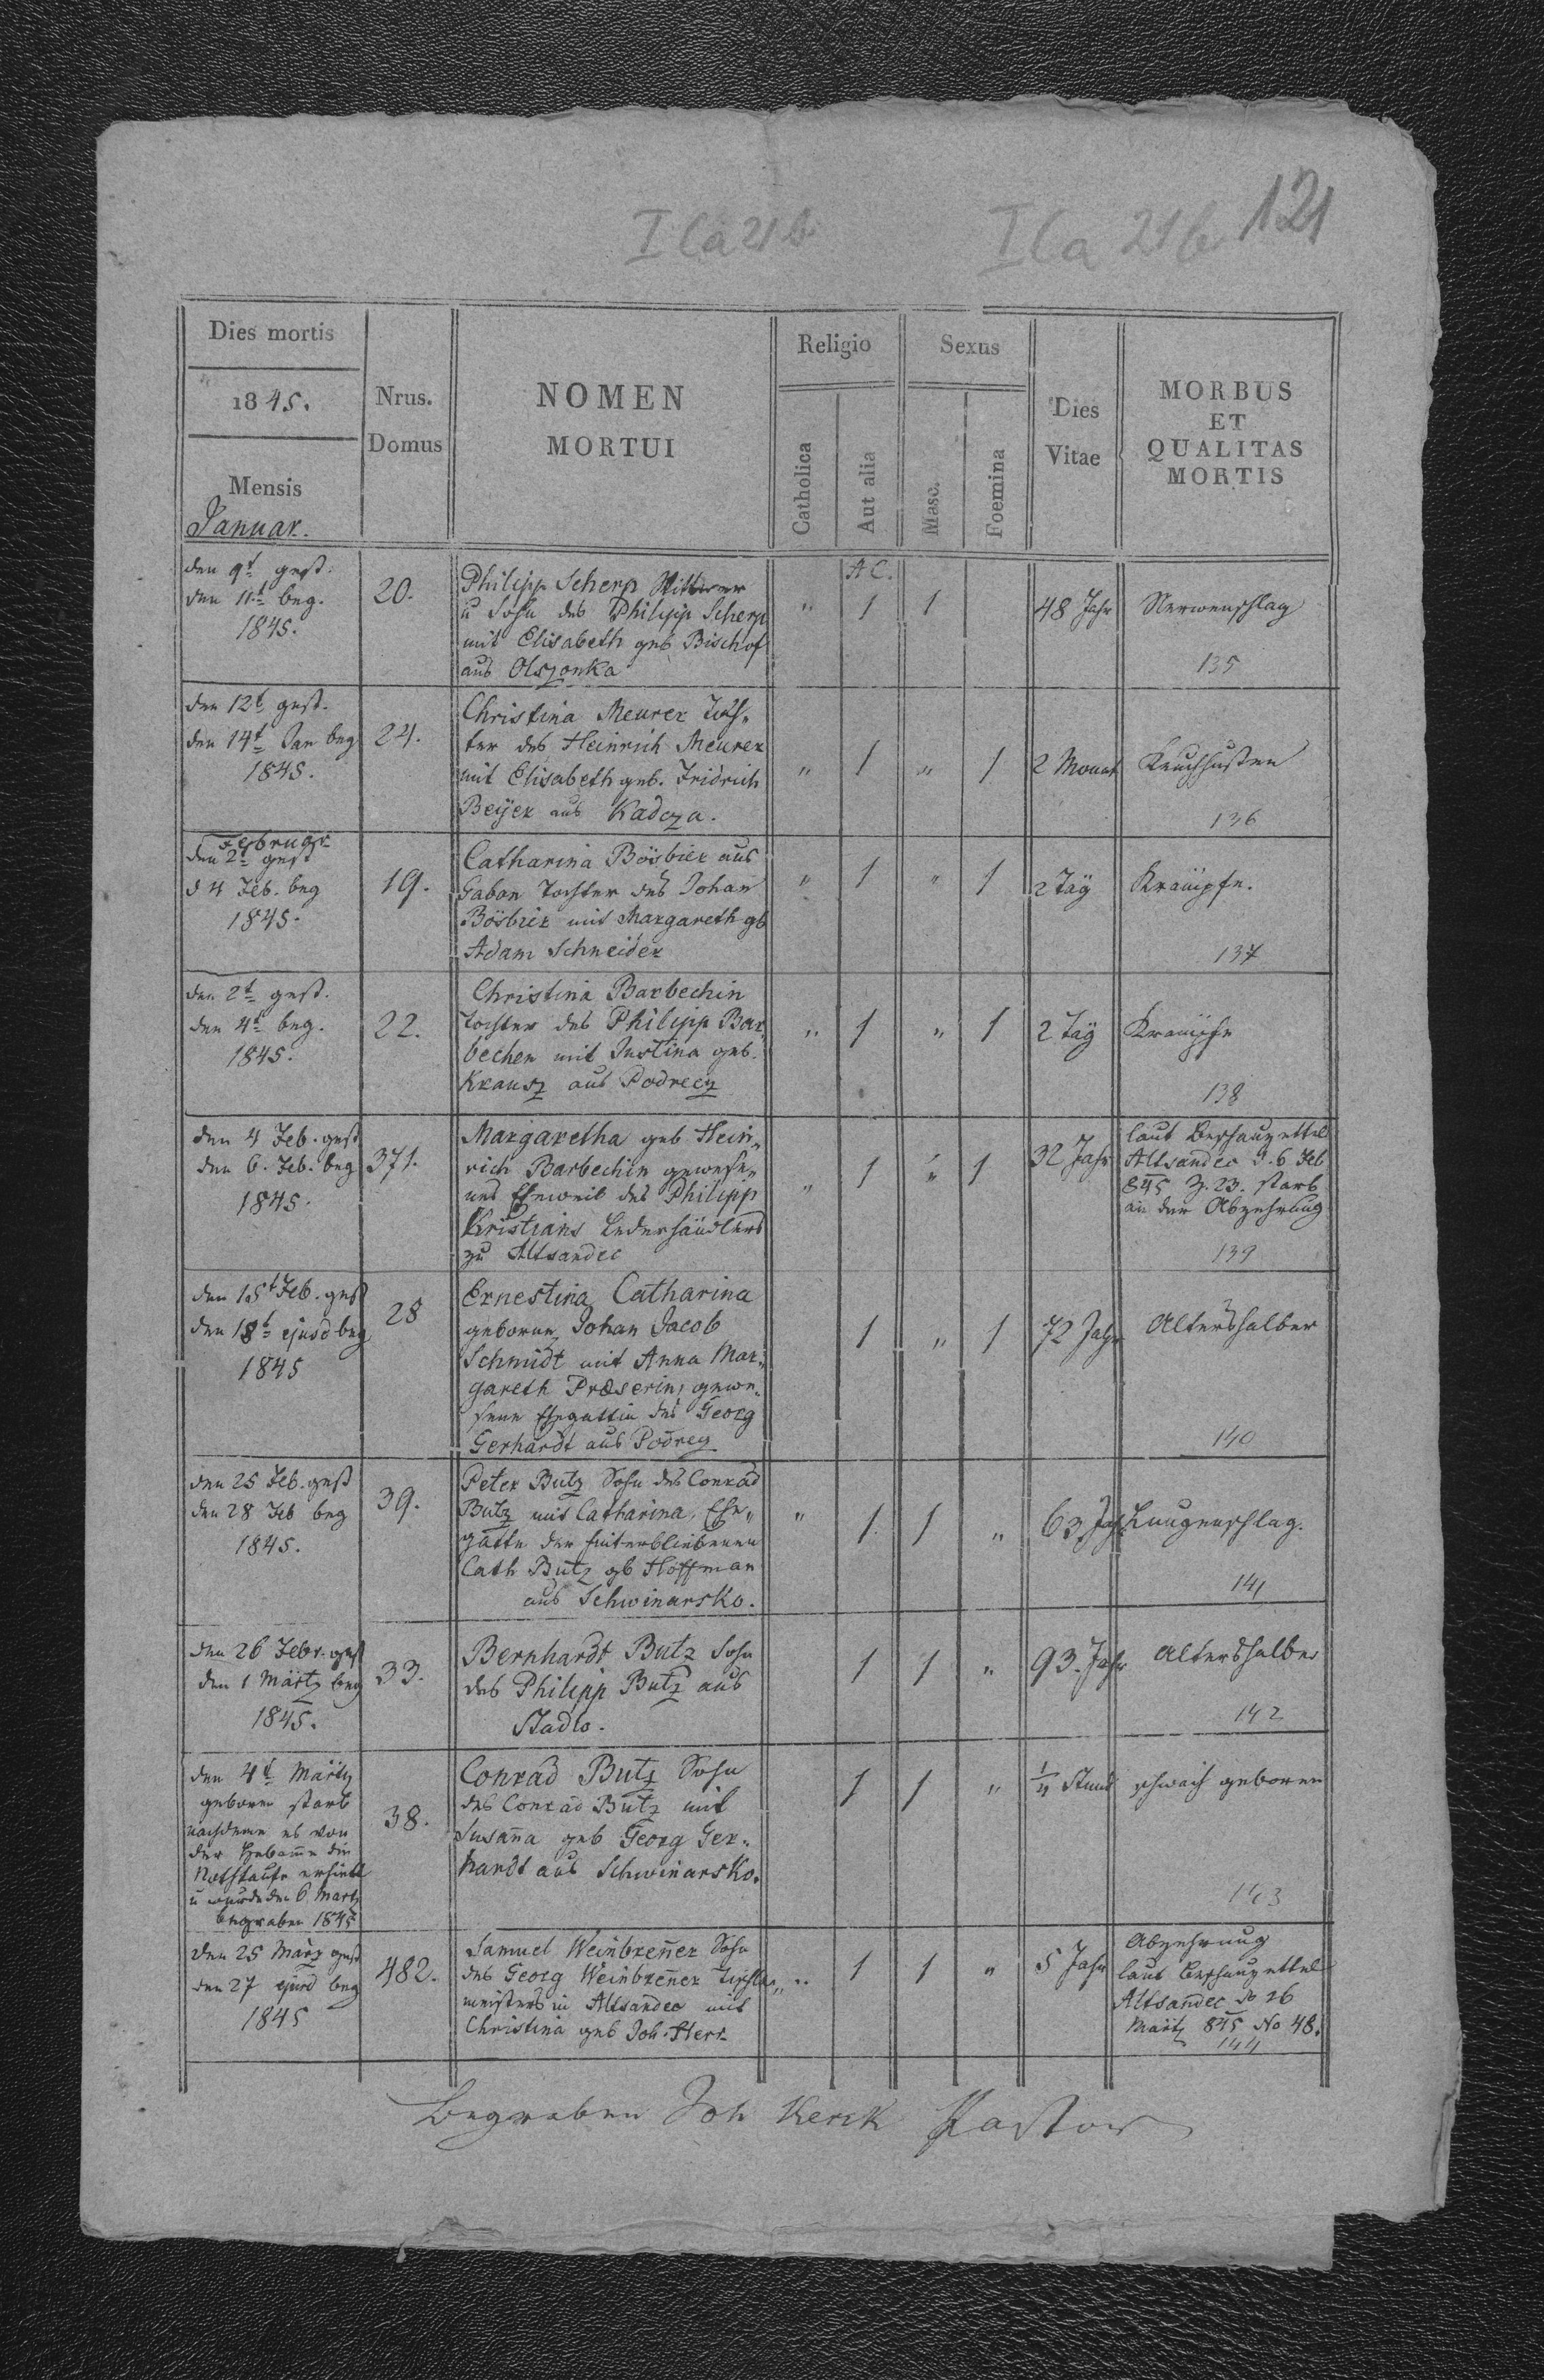 I Ca 21 b
I Ca 21 b
121
Dies mortis
1845.
Mensis
Januar.
Nrus.
Domus
NOMEN
MORTUI
Religio
Catholica
Aut alia
Sexus
Masc.
Foemina
Dies
Vitae
MORBUS
ET
QUALITAS
MORTIS
den 9t gest.
den 11t beg.
1845.
20.
Philipp Scherp Wittwer
u Sohn des Philipp Scherp
mit Elisabeth geb Bischof
aus Olszonka
"
A C.
1
1
48 Jahr
Nervenschlag
135
den 12t gest.
den 14t Jan beg
1845.
24.
Christina Meurer Toch„
ter des Heinrich Meurer
mit Elisabeth geb. Fridrich
Beÿer aus Kadcza.
"
1
"
1
2 Monat
Keuchhusten
136
Februar
den 2t gest
d 4 Feb. beg
1845.
19.
Catharina Bösbier aus
Gabon Tochter des Johan
Bösbier mit Margareth gb
Adam Schneider
"
1
"
1
2 Täg
Krämpfe.
137
den 2t gest.
den 4t beg.
1845.
22.
Christina Barbechin
Tochter des Philipp Bar„
bechen mit Justina geb.
Krausz aus Podrecz
"
1
"
1
2 Täg
Krämpfe
138
den 4 Feb. gest
den 6. Feb. beg
1845.
371.
Margaretha geb Hein„
rich Barbechin gewese„
nes Eheweib des Philipp
Kristians Lederhändlers
zu Altsandec
"
1
"
1
32 Jahr
laut Beschauzettel
Altsandec d. 6 Feb
845 Z. 23. starb
an der Abzehrung
139
den 15t Feb. gest
den 18t ejusd beg
1845
28
Ernestina Catharina
geborne, Johan Jacob
Schmidt mit Anna Mar„
gareth Præserin, gewe„
sene Ehegattin des Georg
Gerhardt aus Podrecz
1
"
1
72 Jahr
Altershalber
140
den 25 Feb. gest
den 28 Feb beg
1845.
39.
Peter Butz Sohn des Conrad
Butz mit Catharina, Ehe„
gatte der hinterbliebenen
Cath Butz gb Hoffman
aus Schwinarsko.
"
1
1
"
63 Jahr
Lungenschlag.
141
den 26 Febr. gest
den 1 Märtz beg
1845.
33.
Bernhardt Butz Sohn
des Philipp Butz aus
Stadlo.
1
1
"
93. Jahr
Altershalber
142
den 4t Märtz
geboren starb
nachdeme es von
der Hebame die
Nothtaufe erhielt
u wurde den 6 Martz
begraben 1845
38.
Conrad Butz Sohn
des Conrad Butz mit
Susana geb Georg Ger„
hardt aus Schwinarsko.
1
1
"
1/4 Stund
schwach geboren
143
den 25 März gest
den 27 ejusd beg
1845
482.
Samuel Weinbrener Sohn
des Georg Weinbrener Tischler„
meisters in Altsandec mit
Christina geb Joh. Herr
"
1
1
"
5 Jahr
Abzehrung
laut Beschauzettel
Altsandec do 26
Märtz 845 No 48.
144
Begraben Joh Kerck Pastor